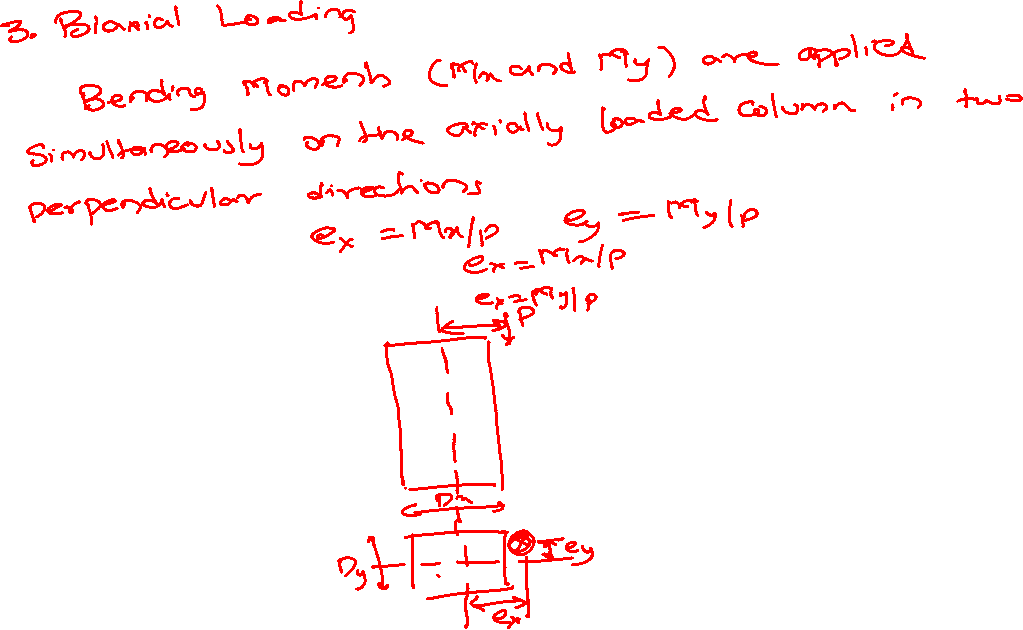 3. Biaxial Loading
Bending Moments (Mx and My) are applied
simultaneously on the axially loaded column in two
perpendicular directions
ex = Mx/P ey = My/P
ex = Mx/P
ex = My/P
P
Dx
Dy
ey
ex